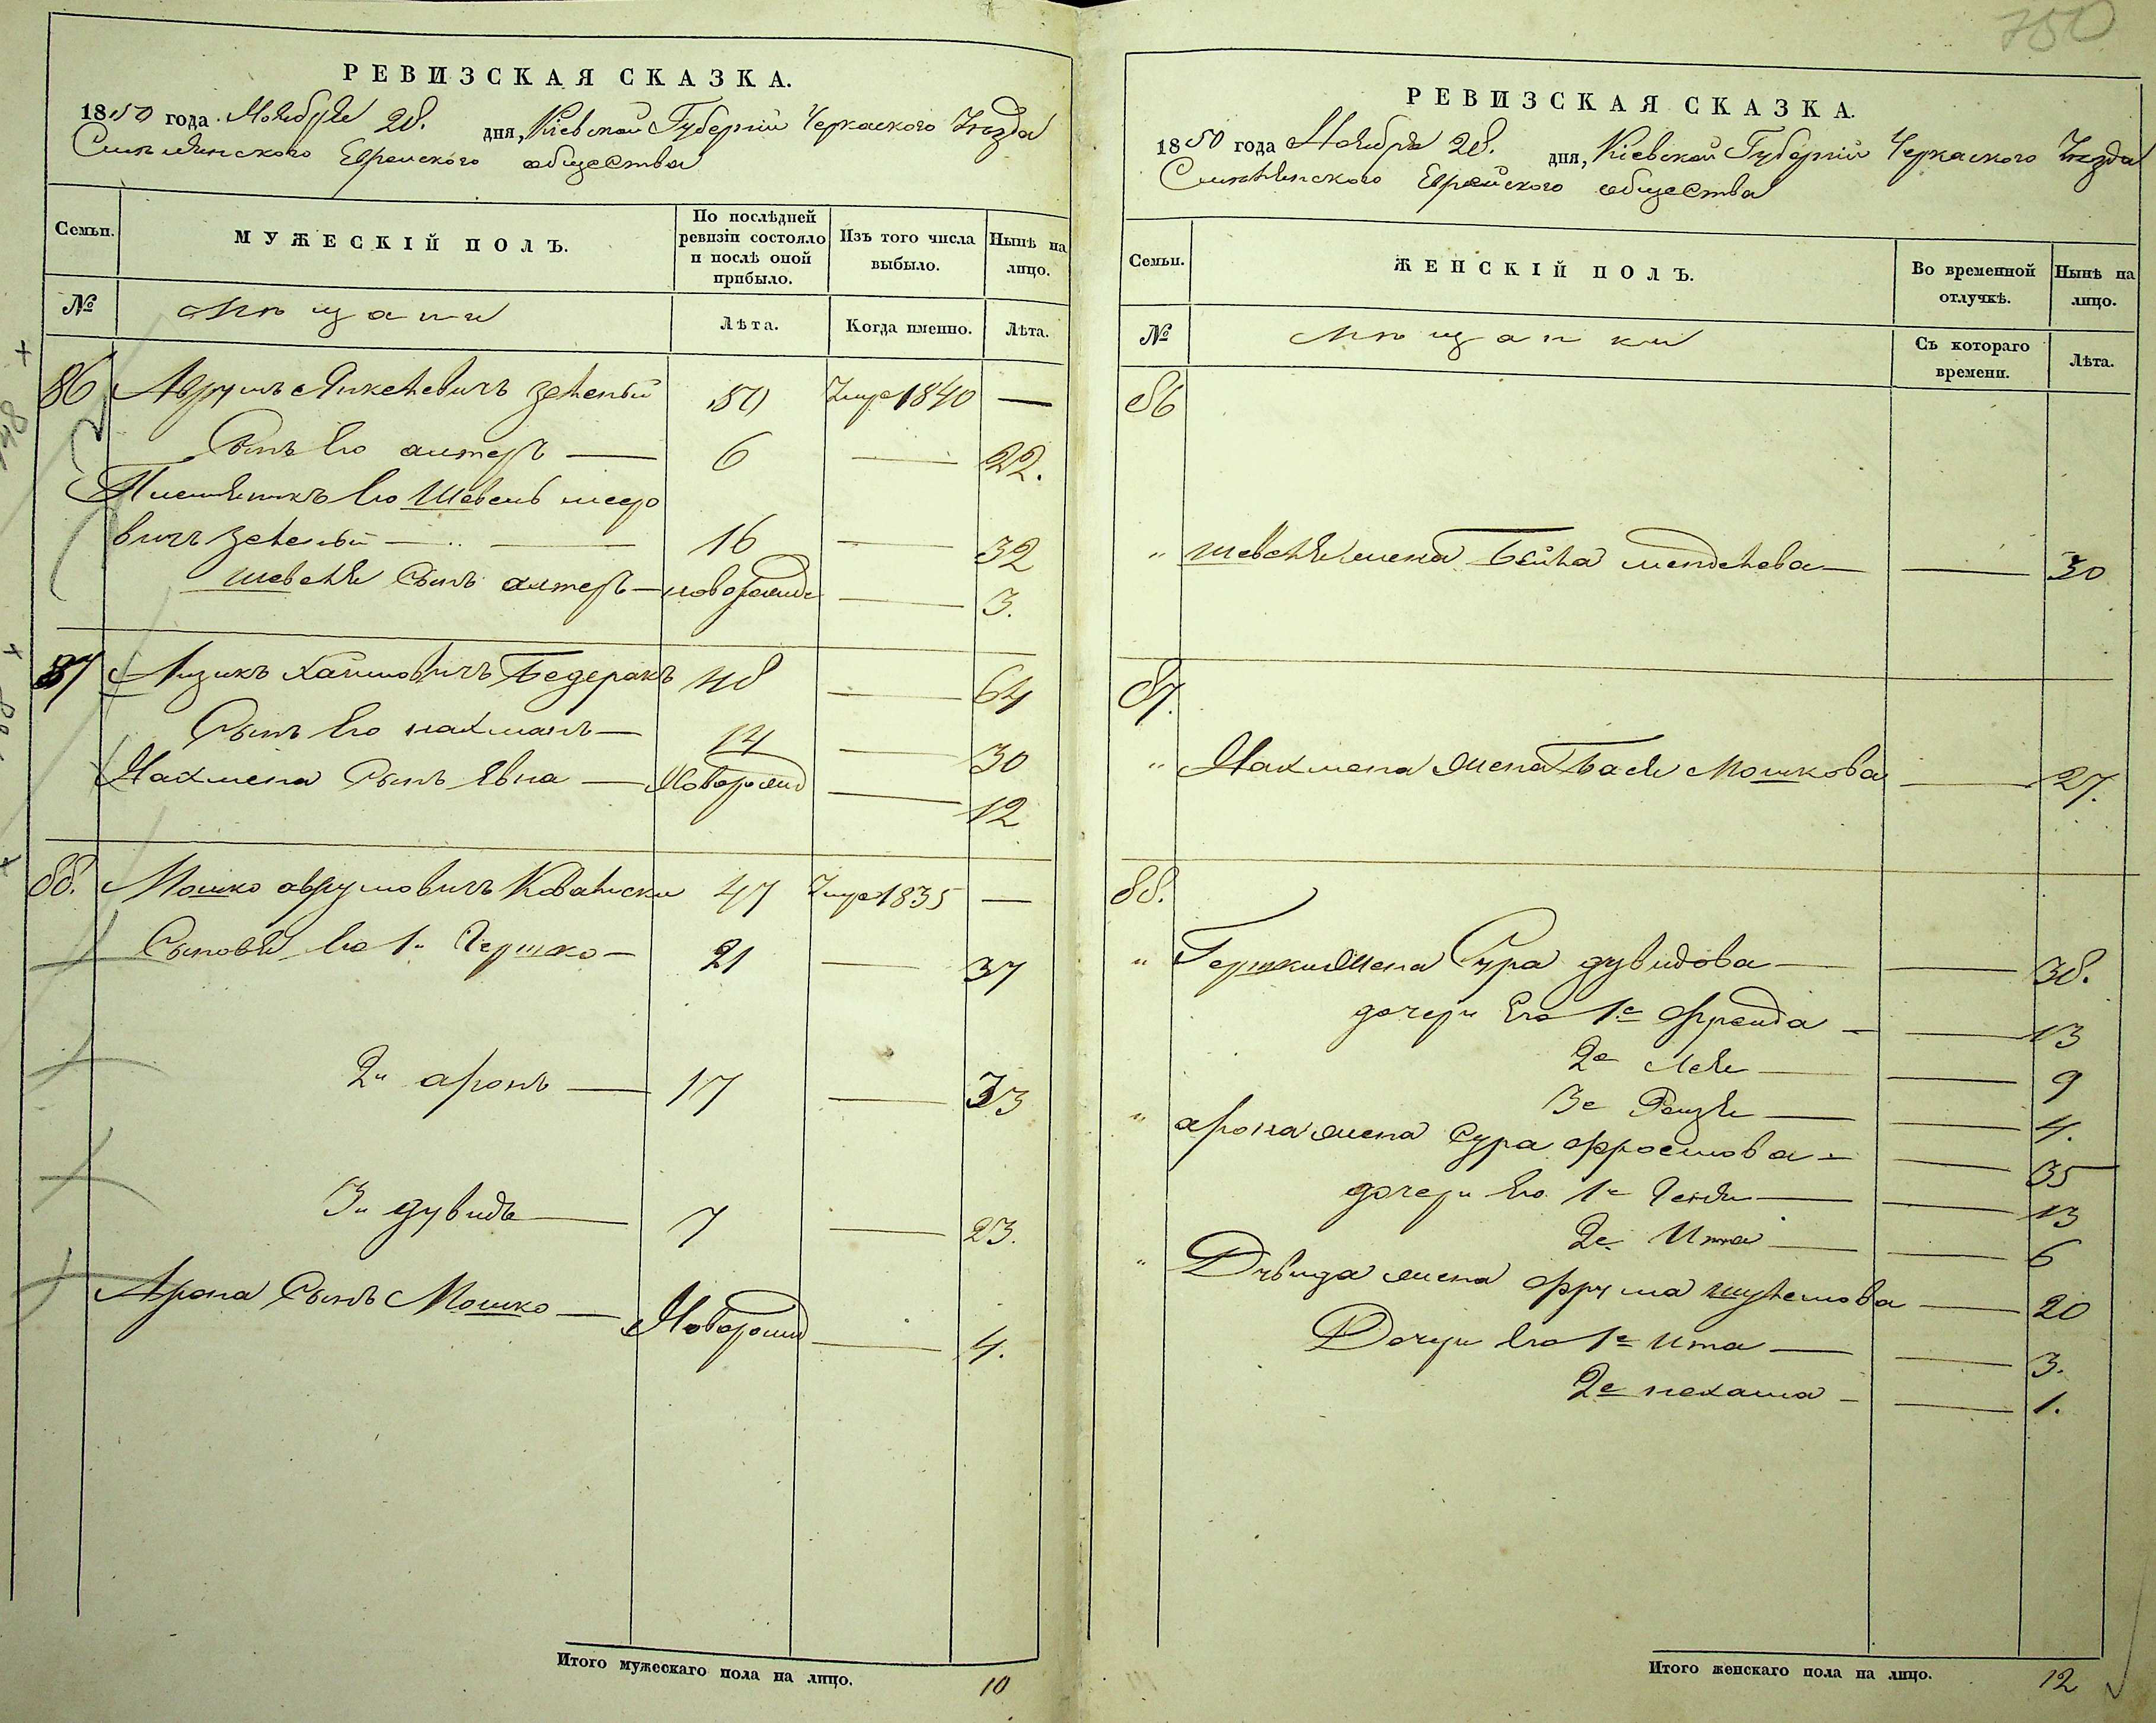 РЕВИЗСКАЯ СКАЗКА.
1850 года Ноября 28. дня, Кіевской Губерніи Черкаского Уѣзда
Смѣлянского Еврейского общества
Семьи.
МУЖЕСКІЙ ПОЛЪ.
По послѣдней ревизіи состояло и послѣ оной прибыло.
Изъ того числа выбыло.
Нынѣ на лицо.
№
мѣщане
Лѣта.
Когда именно.
Лѣта.
86 Аврумъ Янкелевичъ зеленый 50 Умре 1840 —
Сынъ Его алтеръ — 6 — 22.
Племянникъ Его Шевель меер
вичъ зеленый — 16 — 32
шевеля Сынъ алтеръ — новорожде — 3.
87 Айзикъ Хаимовичъ Бедеракъ 48 — 64
Сынъ Его нахманъ — 14 — 30
Нахмена Сынъ Явна — Новорожд — 12
88. Мошко аврумовичъ Ковалиски 47 Умре 1835 —
Сыновья Его 1й Гершко — 21 — 37
2й аронъ — 17 — 33
3й дувидъ — 7 — 23.
Арона Сынъ Мошко — Новорожд — 4.
Итого мужескаго пола на лицо. 10
750
РЕВИЗСКАЯ СКАЗКА.
1850 года Ноября 28. дня, Кіевской Губерніи Черкаского Уѣзда
Смѣлянского Еврейского общества
Семьи.
ЖЕНСКІЙ ПОЛЪ.
Во временной отлучкѣ.
Нынѣ на лицо.
№
мѣщанки
Съ котораго времени.
Лѣта.
86
" шевеля жена Бейла менделева — — 30
87.
" Нахмена жена Бася Мошкова — 27.
88.
" Гершки жена Сура дувидова — — 38.
дочери Его 1е Фрейда — — 13
2е Лея — — 9
3е Рейзя — — 4.
" арона жена Сура Фроимова — — 35
дочери Его 1е Геня — — 13
2е Ита — — 6
" Дувида жена Фрума шулемова — 20
Дочери Его 1е Ита — — 3.
2е нехама — — 1.
Итого женскаго пола на лицо. 12